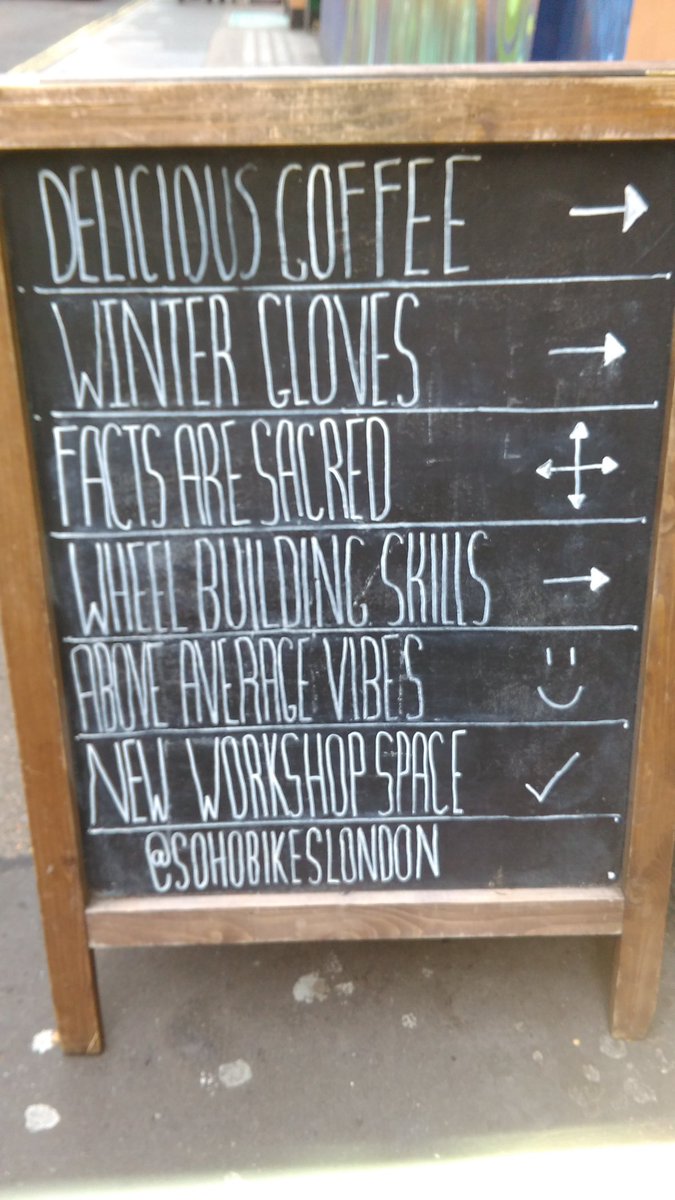 DELICIOUS COFFEE →
WINTER GLOVES →
FACTS ARE SACRED
WHEEL BUILDING SKILLS →
ABOVE AVERAGE VIBES
NEW WORKSHOP SPACE ✓
@SOHOBIKESLONDON